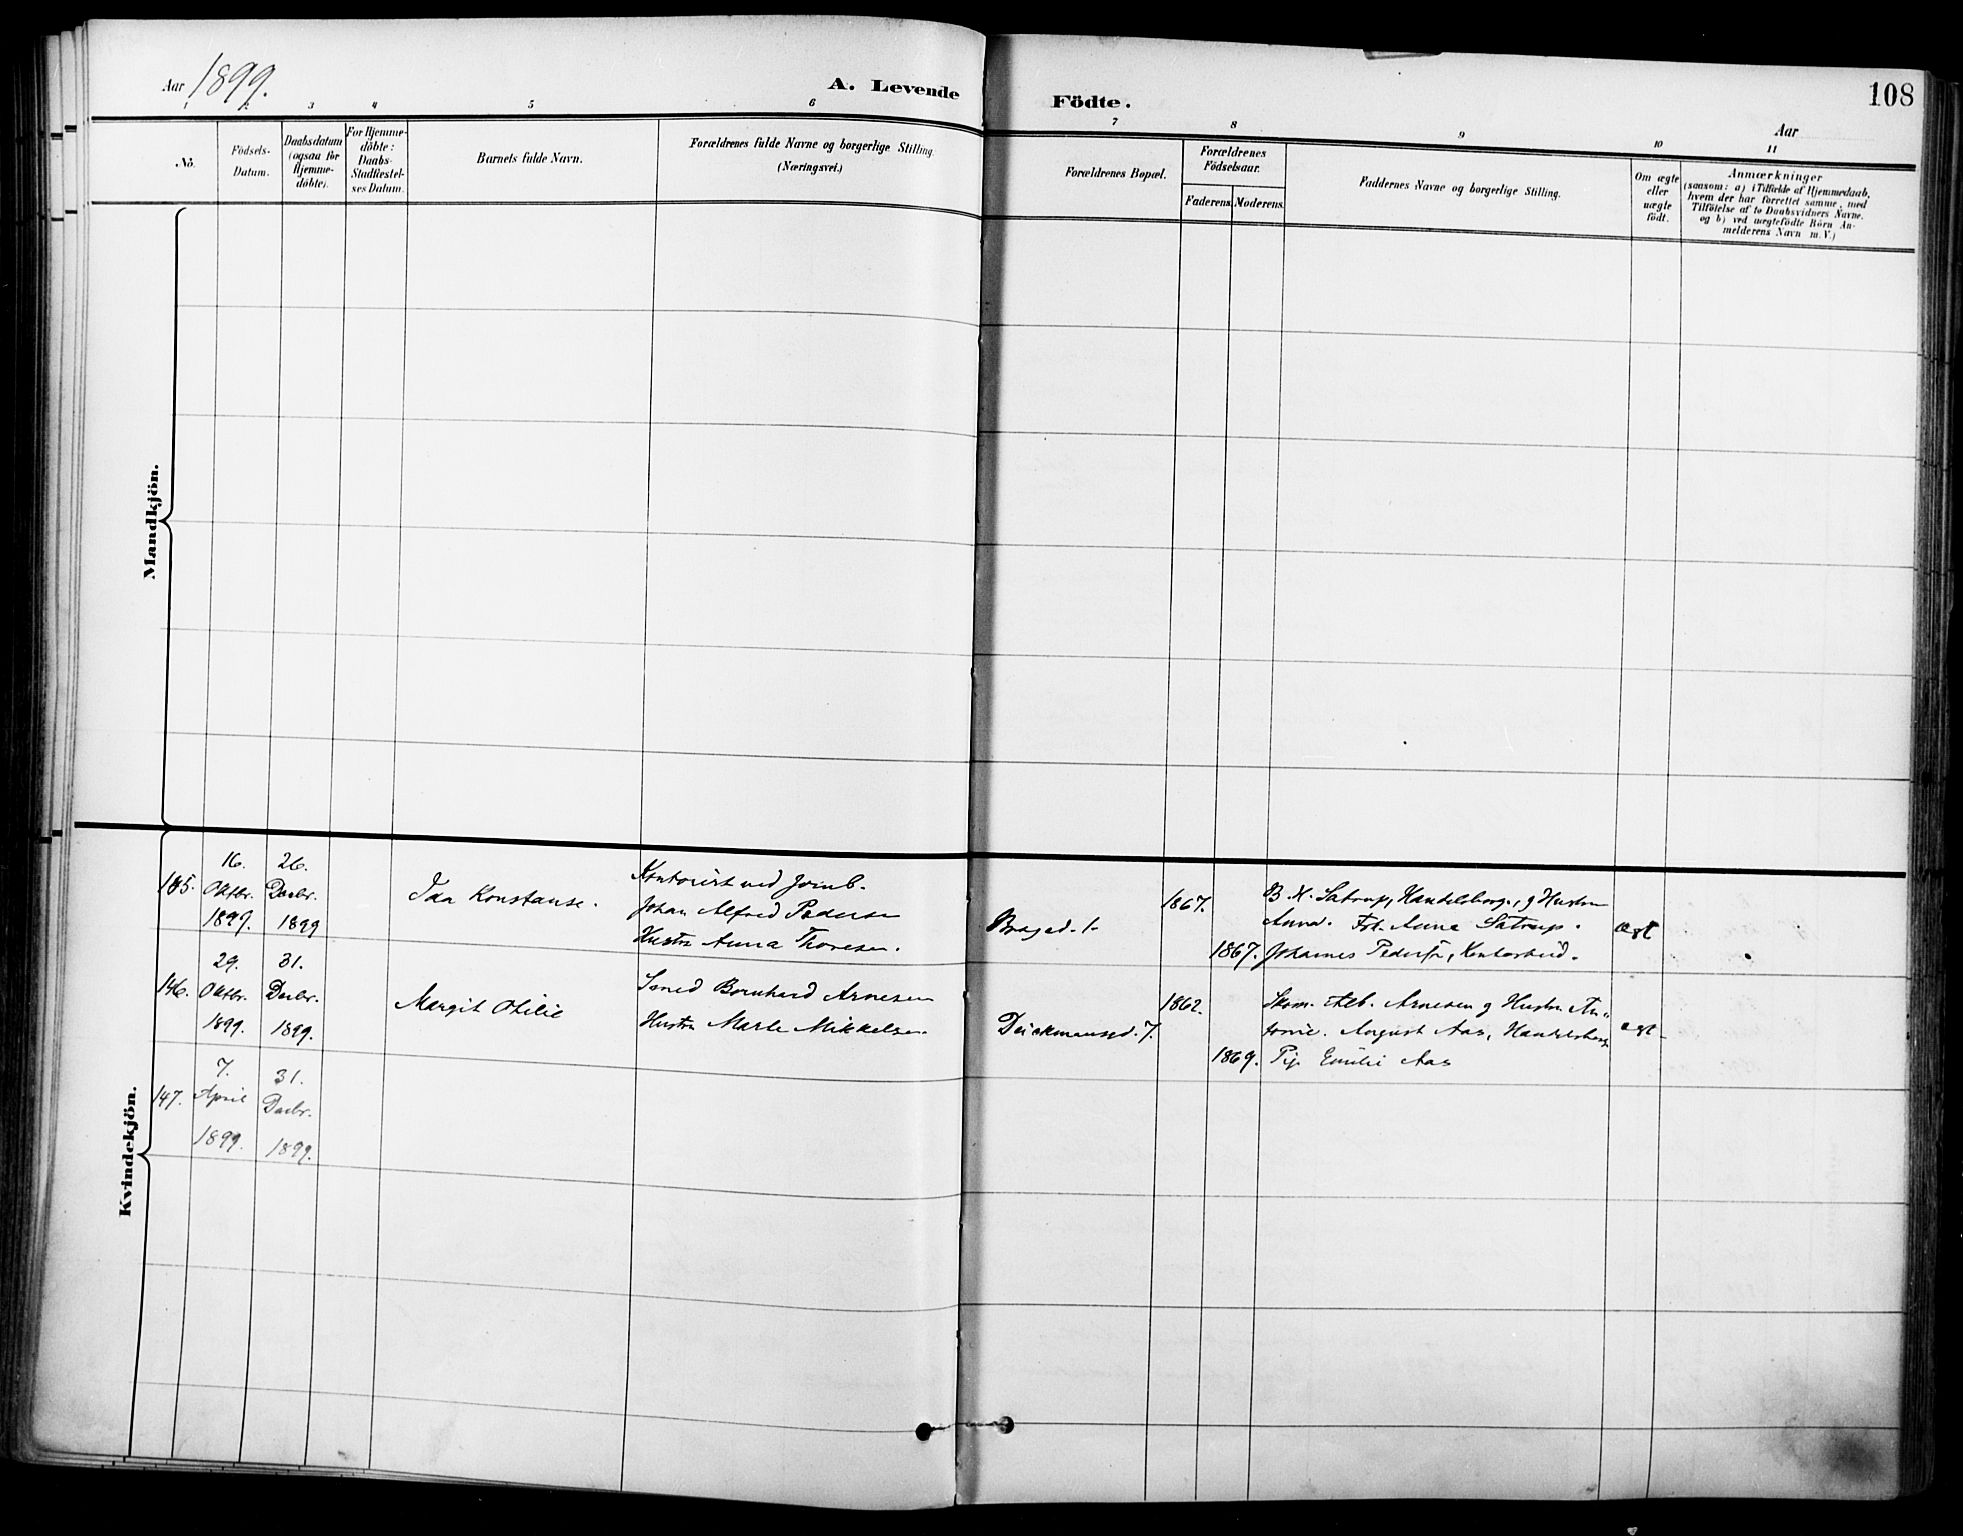 Aar 1899.
A. Levende
Födte.
108
Aar
1 2 3 4 5 6
7 8 9 10 11
No.
Födsels-
Datum.
Daabsdatum
(ogsaa för
Hjemme-
döbte).
For Hjemme-
döbte:
Daabs-
Stadfæstel-
ses Datum.
Barnets fulde Navn.
Forældrenes fulde Navne og borgerlige Stilling.
(Næringsvei.)
Forældrenes Bopæl.
Forældrenes
Födselsaar.
Faderens.
Moderens.
Faddernes Navne og borgerlige Stilling.
Om ægte
eller
uægte
födt.
Anmærkninger
(saasom: a) i Tilfælde af Hjemmedaab,
hvem der har forrettet samme, med
Tilföielse af to Daabsvidners Navne.
og b) ved uægtefödte Börn An-
melderens Navn m.V.)
Mandkjön.
Kvindekjön.
185.
16.
Oktbr.
1899.
26.
Decbr.
1899
Ida Konstanse.
Kontorist ved Jernb.
Johan Alfred Pedersen
Hustru Anna Thoresen.
Bragad. 1.
1867.
1867.
B. H. Satrup, Handelsborg., g Hustru
Anna. Frk. Anna Satrup.
Johannes Pedersen, Kontorbud.
ægt
146.
29.
Oktbr.
1899.
31.
Decbr.
1899.
Margit Otilie
Smed Bernhard Arnesen
Hustru Marte Mikkelsen.
Deickmansgd. 7.
1862.
1869.
Skom. Alb. Arnesen g Hustru An-
tonie. August Aas, Handelsborg
Pige Emilie Aas
ægt
147.
7.
April
1899.
31.
Decbr.
1899.